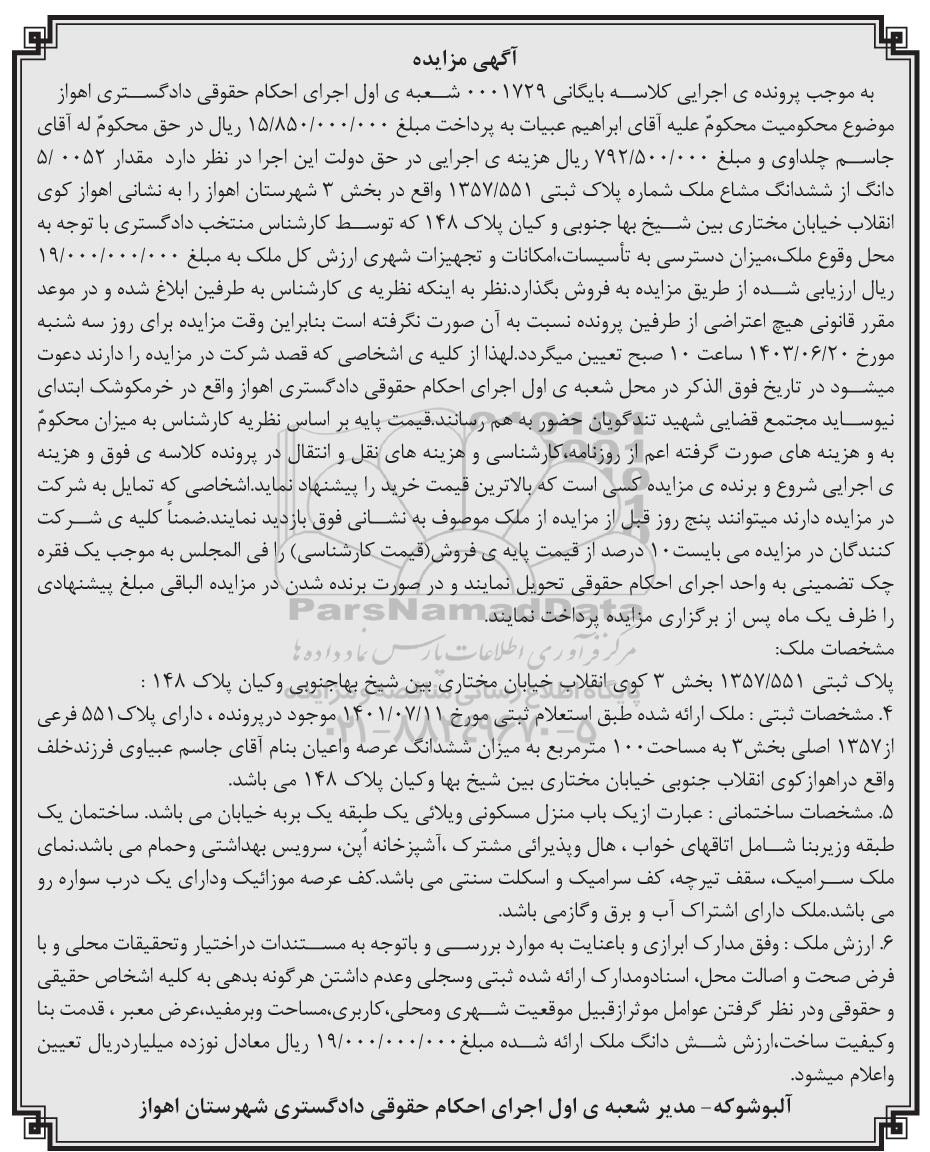 آگهی مزایده
به موجب پرونده ی اجرایی کلاسه بایگانی ۰۰۰۱۷۲۹ شعبه ی اول اجرای احکام حقوقی دادگستری اهواز
موضوع محکومیت محکومٌ علیه آقای ابراهیم عبیات به پرداخت مبلغ ۱۵/۸۵۰/۰۰۰/۰۰۰ ریال در حق محکومٌ له آقای
جاسم چلداوی و مبلغ ۷۹۲/۵۰۰/۰۰۰ ریال هزینه ی اجرایی در حق دولت این اجرا در نظر دارد مقدار ۰۰۵۲ /۵
دانگ از ششدانگ مشاع ملک شماره پلاک ثبتی ۱۳۵۷/۵۵۱ واقع در بخش ۳ شهرستان اهواز را به نشانی اهواز کوی
انقلاب خیابان مختاری بین شیخ بها جنوبی و کیان پلاک ۱۴۸ که توسط کارشناس منتخب دادگستری با توجه به
محل وقوع ملک،میزان دسترسی به تأسیسات،امکانات و تجهیزات شهری ارزش کل ملک به مبلغ ۱۹/۰۰۰/۰۰۰/۰۰۰
ریال ارزیابی شده از طریق مزایده به فروش بگذارد.نظر به اینکه نظریه ی کارشناس به طرفین ابلاغ شده و در موعد
مقرر قانونی هیچ اعتراضی از طرفین پرونده نسبت به آن صورت نگرفته است بنابراین وقت مزایده برای روز سه شنبه
مورخ ۱۴۰۳/۰۶/۲۰ ساعت ۱۰ صبح تعیین میگردد.لهذا از کلیه ی اشخاصی که قصد شرکت در مزایده را دارند دعوت
میشود در تاریخ فوق الذکر در محل شعبه ی اول اجرای احکام حقوقی دادگستری اهواز واقع در خرمکوشک ابتدای
نیوساید مجتمع قضایی شهید تندگویان حضور به هم رسانند.قیمت پایه بر اساس نظریه کارشناس به میزان محکومٌ
به و هزینه های صورت گرفته اعم از روزنامه،کارشناسی و هزینه های نقل و انتقال در پرونده کلاسه ی فوق و هزینه
ی اجرایی شروع و برنده ی مزایده کسی است که بالاترین قیمت خرید را پیشنهاد نماید.اشخاصی که تمایل به شرکت
در مزایده دارند میتوانند پنج روز قبل از مزایده از ملک موصوف به نشانی فوق بازدید نمایند.ضمناً کلیه ی شرکت
کنندگان در مزایده می بایست۱۰ درصد از قیمت پایه ی فروش(قیمت کارشناسی) را فی المجلس به موجب یک فقره
چک تضمینی به واحد اجرای احکام حقوقی تحویل نمایند و در صورت برنده شدن در مزایده الباقی مبلغ پیشنهادی
را ظرف یک ماه پس از برگزاری مزایده پرداخت نمایند.
ParsNamadData
مشخصات ملک:
مرکز فرآوری اطلاعات پارس نماد داده ها
پلاک ثبتی ۱۳۵۷/۵۵۱ بخش ۳ کوی انقلاب خیابان مختاری بین شیخ بهاجنوبی وکیان پلاک ۱۴۸ :
۴. مشخصات ثبتی : ملک ارائه شده طبق استعلام ثبتی مورخ ۱۴۰۱/۰۷/۱۱ موجود درپرونده ، دارای پلاک۵۵۱ فرعی
۰۲۱-۸۸۳۴۹۶۷۰-۵
از۱۳۵۷ اصلی بخش۳ به مساحت۱۰۰ مترمربع به میزان ششدانگ عرصه واعیان بنام آقای جاسم عبیاوی فرزندخلف
واقع دراهوازکوی انقلاب جنوبی خیابان مختاری بین شیخ بها وکیان پلاک ۱۴۸ می باشد.
۵. مشخصات ساختمانی : عبارت ازیک باب منزل مسکونی ویلائی یک طبقه یک بربه خیابان می باشد. ساختمان یک
طبقه وزیربنا شامل اتاقهای خواب ، هال وپذیرائی مشترک ،آشپزخانه اُپن، سرویس بهداشتی وحمام می باشد.نمای
ملک سرامیک، سقف تیرچه، کف سرامیک و اسکلت سنتی می باشد.کف عرصه موزائیک ودارای یک درب سواره رو
می باشد.ملک دارای اشتراک آب و برق وگازمی باشد.
۶. ارزش ملک : وفق مدارک ابرازی و باعنایت به موارد بررسی و باتوجه به مستندات دراختیار وتحقیقات محلی و با
فرض صحت و اصالت محل، اسنادومدارک ارائه شده ثبتی وسجلی وعدم داشتن هرگونه بدهی به کلیه اشخاص حقیقی
و حقوقی ودر نظر گرفتن عوامل موثرازقبیل موقعیت شهری ومحلی،کاربری،مساحت وبرمفید،عرض معبر ، قدمت بنا
وکیفیت ساخت،ارزش شش دانگ ملک ارائه شده مبلغ۱۹/۰۰۰/۰۰۰/۰۰۰ ریال معادل نوزده میلیاردریال تعیین
واعلام میشود.
آلبوشوکه- مدیر شعبه ی اول اجرای احکام حقوقی دادگستری شهرستان اهواز